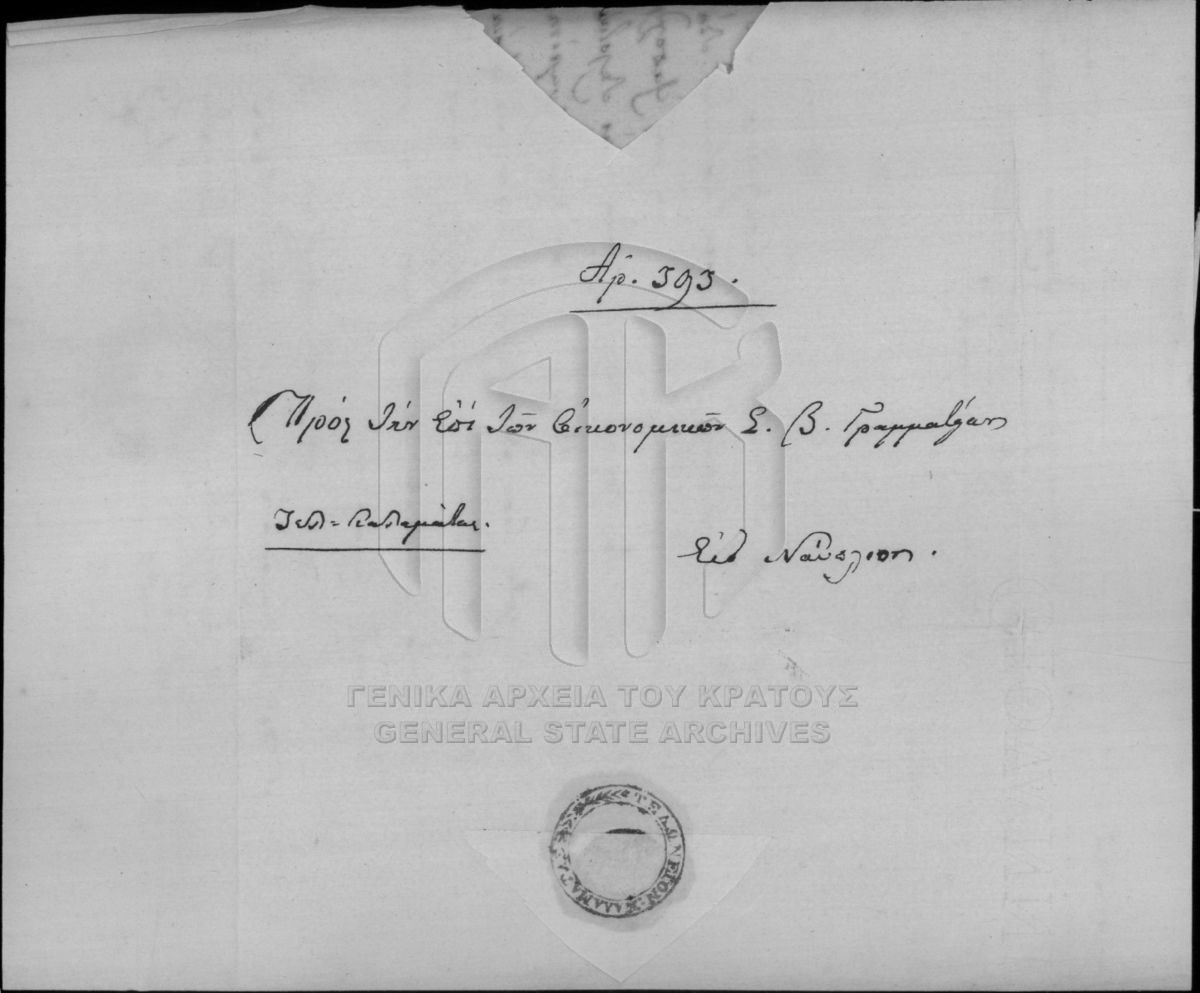 Ἀρ. 393.
Πρὸς τὴν ἐπὶ τῶν Οἰκονομικῶν Σ. Β. Γραμματείαν
Τελ= Καλαμάτας.
Εἰς Ναύπλιον.
ΓΕΝΙΚΑ ΑΡΧΕΙΑ ΤΟΥ ΚΡΑΤΟΥΣ
GENERAL STATE ARCHIVES
ΤΕΛΩΝΕΙΟΝ ΚΑΛΑΜΑΤΑΣ